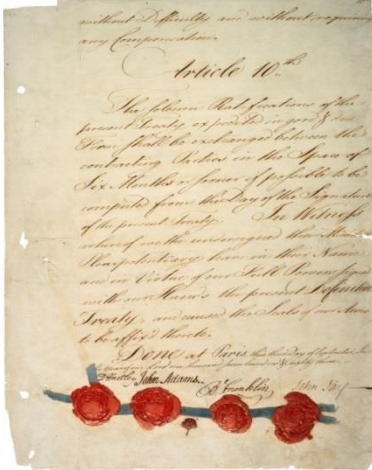 without Difficulty and without requiring
any Compensation.
Article 10.th
The solemn Ratifications of the
present Treaty expedited in good & due
Form shall be exchanged between the
contracting Parties in the Space of
Six Months or sooner if possible to be
computed from the Day of the Signature
of the present Treaty. In Witness
whereof we the undersigned their Ministers
Plenipotentiary have in their Name
and in Virtue of our Full Powers signed
with our Hands the present Definitive
Treaty, and caused the Seals of our Arms
to be affix'd thereto.
Done at Paris, this third day of September, In the
year of our Lord one thousand seven hundred & eighty three.
D Hartley John Adams. B Franklin John Jay